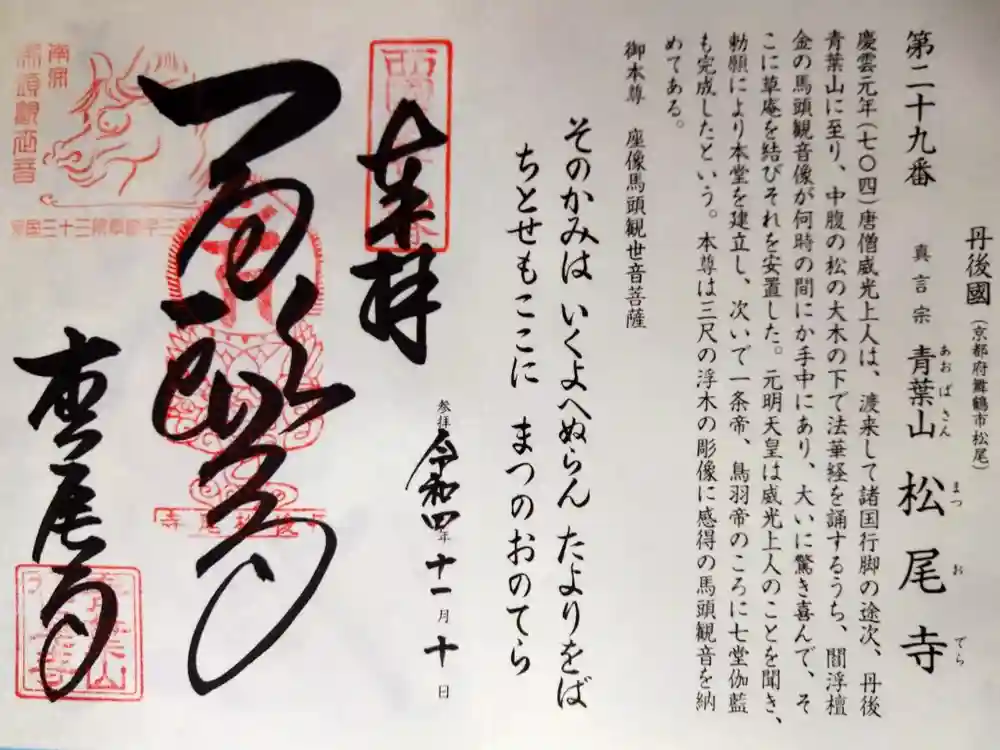 丹後國(京都府舞鶴市松尾)
第二十九番 真言宗 青葉山 松尾寺
あおばさん まつおでら
慶雲元年(七〇四)唐僧威光上人は、渡来して諸国行脚の途次、丹後
青葉山に至り、中腹の松の大木の下で法華経を誦するうち、閻浮檀
金の馬頭観音像が何時の間にか手中にあり、大いに驚き喜んで、そ
こに草庵を結びそれを安置した。元明天皇は威光上人のことを聞き、
勅願により本堂を建立し、次いで一条帝、鳥羽帝のころに七堂伽藍
も完成したという。本尊は三尺の浮木の彫像に感得の馬頭観音を納
めてある。
御本尊 座像馬頭観世音菩薩
そのかみは いくよへぬらん たよりをば
ちとせもここに まつのおのてら
参拝 令和四年 十一月 十日
奉拝
松尾寺